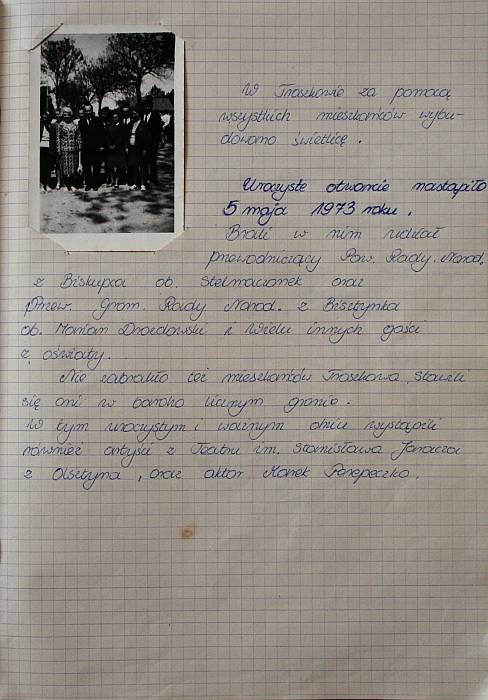 W Troszkowie za pomocą
wszystkich mieszkańców wybu-
dowano świetlicę.
Uroczyste otwarcie nastąpiło
5 maja 1973 roku.
Brali w nim udział
przewodniczący Pow. Rady. Narod.
z Biskupca ob. Stelmaczonek oraz
Przew. Grom. Rady Narod. z Bisztynka
ob. Marian Drozdowski i wielu innych gości
z oświaty.
Nie zabrakło też mieszkańców Troszkowa, stawili
się oni w bardzo licznym gronie.
W tym uroczystym i ważnym dniu wystąpili
również artyści z Teatru im. Stanisława Jaracza
z Olsztyna, oraz aktor Marek Perepeczko.